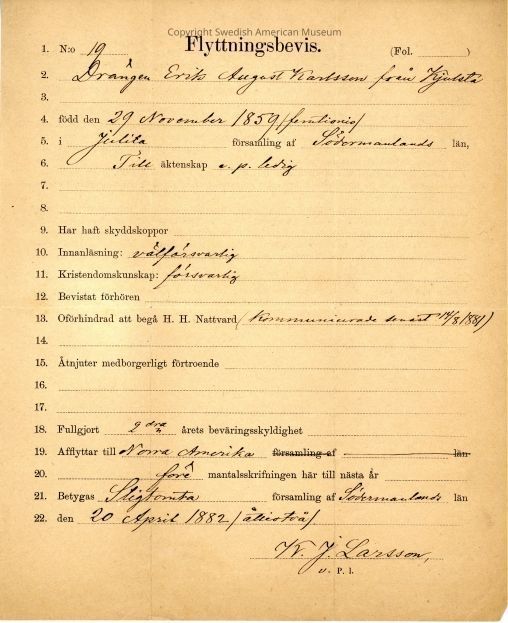 Copyright Swedish American Museum
Flyttningsbevis.
1. N:o 19 (Fol. )
2. Drängen Erik August Karlsson från Kjulsta
3.
4. född den 29 November 1859 /femtionio/
5. i Julita församling af Södermanlands län,
6. Till äktenskap e. p. ledig
7.
8.
9. Har haft skyddskoppor
10. Innanläsning: välförsvarlig
11. Kristendomskunskap: försvarlig
12. Bevistat förhören
13. Oförhindrad att begå H. H. Nattvard (kommunicerade senast 14/8 1881)
14.
15. Åtnjuter medborgerligt förtroende
16.
17.
18. Fullgjort 2 dra årets beväringsskyldighet
19. Afflyttar till Norra Amerika församling af län
20. före mantalsskrifningen här till nästa år
21. Betygas Stigtomta församling af Södermanlands län
22. den 20 April 1882 /åttiotvå/
K. J. Larsson,
v. P. l.